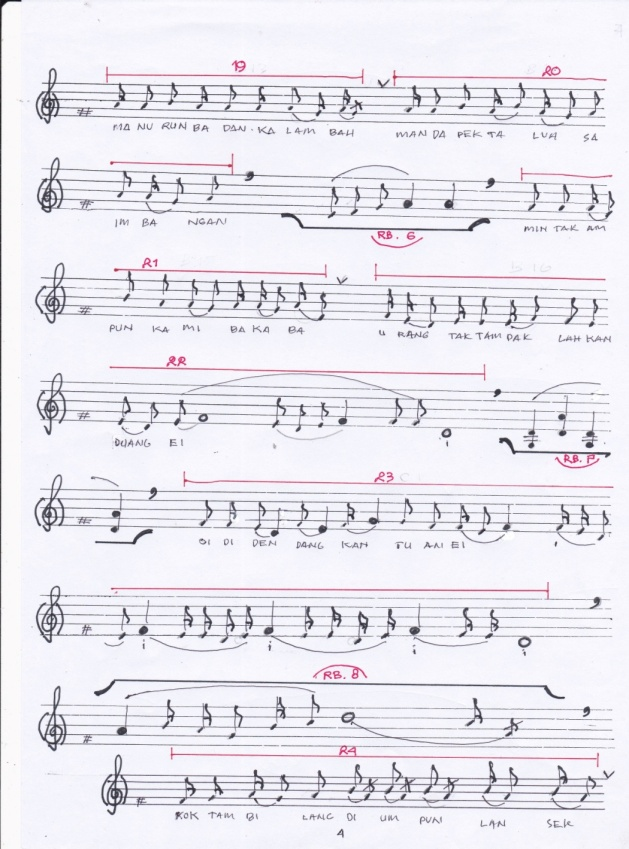 19 20
MA NU RUN BA DAN-KA LAM BAH MAN DA PEK TA LUA SA
IM BA NGAN MIN TAK AM
RB. 6
21
PUN KA MI BA KA BA U RANG TAK TAM PAK LAH KAN
22
DUANG EI i
RB. 7
23
OI DI DEN DANG KAN TU AN EI i
i i i i
RB. 8
24
KOK TAM BI LANG DI UM PUN LAN SEK
4